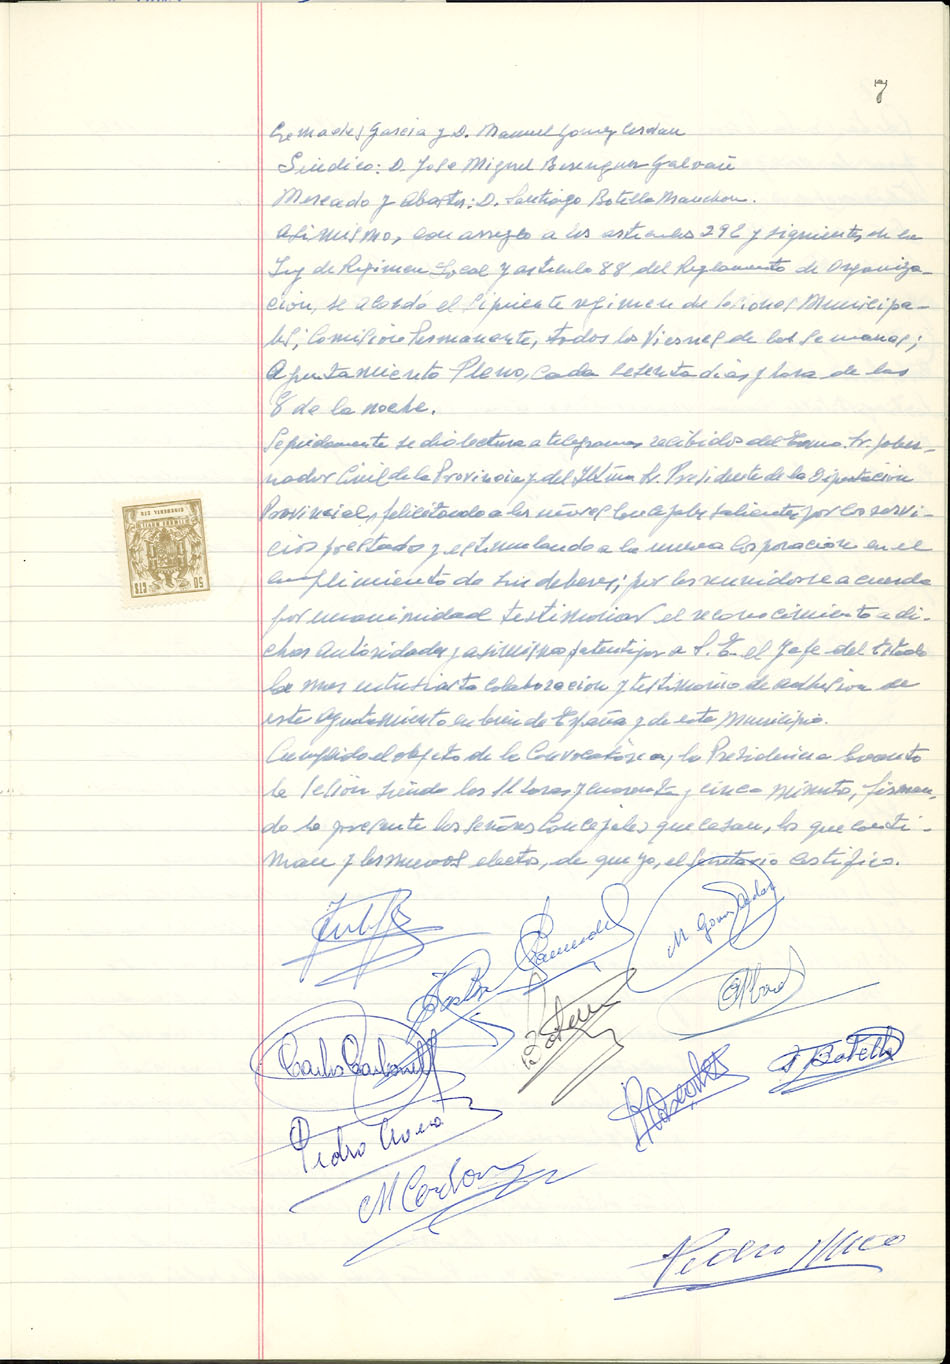 7
Cremades Garcia y D. Manuel Gomez Cerdan
Sindico: D. Jose Miguel Berenguer Galvañ
Mercado y Abastos: D. Santiago Botella Manchon.
Asimismo, con arreglo a los articulos 292 y siguientes de la
Ley de Regimen Local y articulo 88 del Reglamento de Organiza-
cion, se acordó el siguiente regimen de sesiones Municipa-
les; Comision Permanente, todos los Viernes de las semanas;
Ayuntamiento Pleno, cada setenta dias y hora de las
8 de la noche.
Seguidamente se dio lectura a telegramas recibidos del Excmo. Sr. Gober-
nador Civil de la Provincia y del Iltmo Sr. Presidente de la Diputación
Provincial, felicitando a los señores Concejales salientes por los servi-
cios prestados y estimulando a la nueva Corporacion en el
cumplimiento de sus deberes; por los reunidos se acuerda
por unanimidad testimoniar el reconocimiento a di-
chas autoridades y asimismo patentizar a S. E. el Jefe del Estado
la mas entusiasta colaboracion y testimonio de adhesion de
este Ayuntamiento en bien de España y de este Municipio.
Cumplido el objeto de la Convocatoria, la Presidencia levanto
la sesion siendo las 11 horas y cuarenta y cinco minutos, firman-
do la presente los Señores Concejales que cesan, los que conti-
nuan y los nuevos electos, de que yo, el Secretario certifico.
50 CTS
CINCUENTA CTS
M Gomez Cerdan
Botella
Carlos Carbonell
S Botella
Pedro
M Cerdan
Pedro Mico